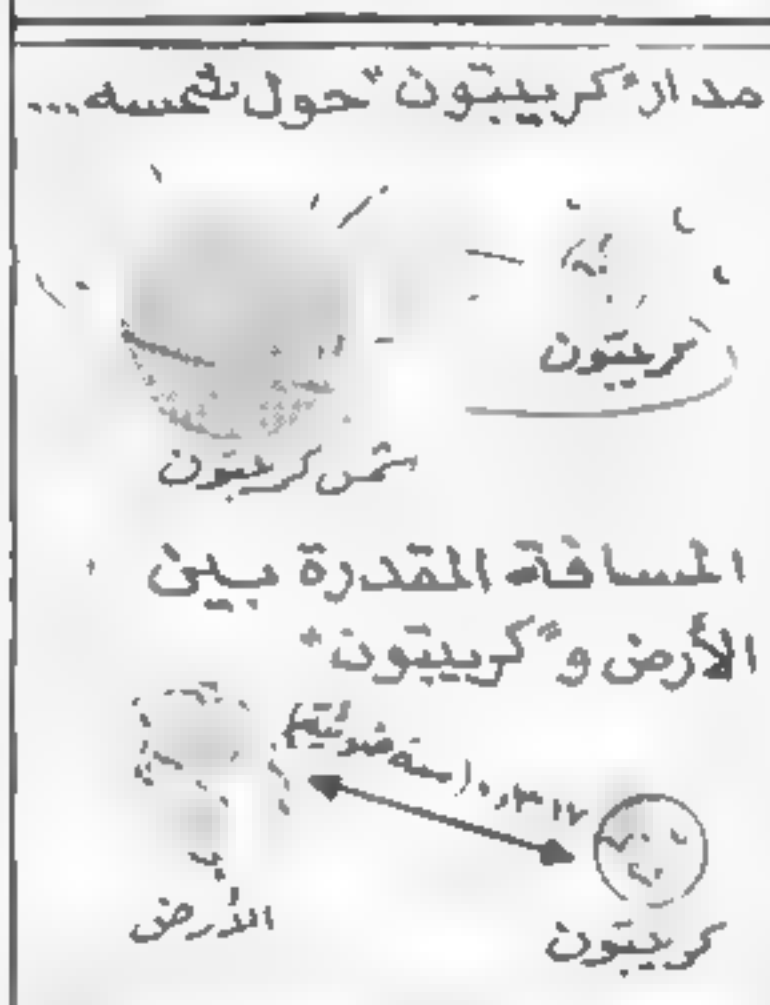 مدار "كريبتون" حول شمسه...
كريبتون
شمس كريبتون
المسافة المقدرة بين
الأرض و"كريبتون"
(سنة ضوئية)
كريبتون
الأرض